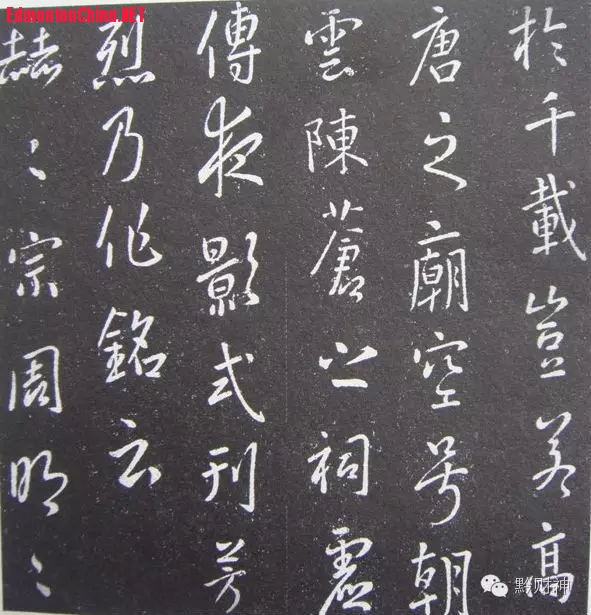 EdmontonChina.NET
於千載豈若高
唐之廟空号朝
雲陳蒼之祠虛
傳夜影式刊芳
烈乃作銘云
赫〻宗周明〻
黔财神